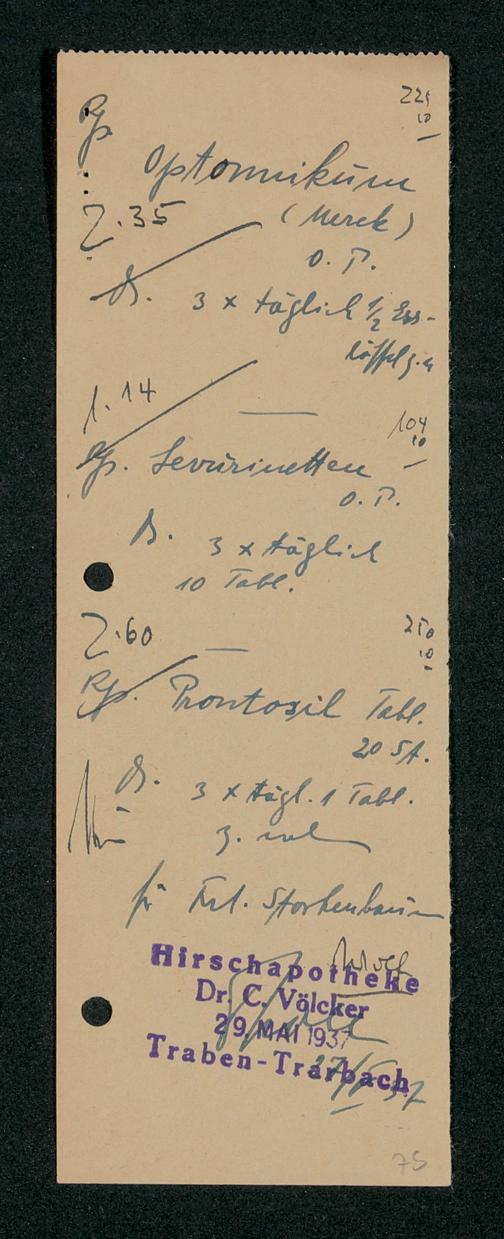 Rp.
225
10
Optonnikum
2.35
(Merck)
O.P.
S. 3 x täglich 1/2 Ess-
löffel
1.14
104
10
Rp. Levurinetten
O.P.
S. 3 x täglich
10 Tabl.
2.60
250
10
Rp. Prontosil Tabl.
20 St.
S. 3 x tägl. 1 Tabl.
für Frl. Storkenbaum
Hirschapotheke
Dr. C. Völcker
29. MAI 1937
Traben-Trarbach
75